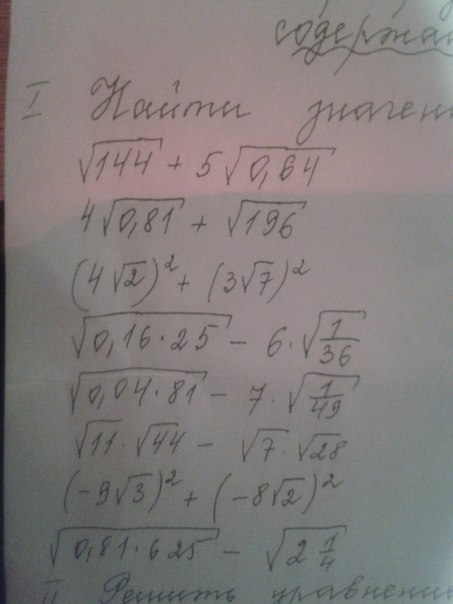 содержа
I Найти значен
√144 + 5√0,64
4√0,81 + √196
(4√2)² + (3√7)²
√0,16·25 − 6·√1/36
√0,04·81 − 7·√1/49
√11·√44 − √7·√28
(−9√3)² + (−8√2)²
√0,81·625 − √2 1/4
II Решить уравнение